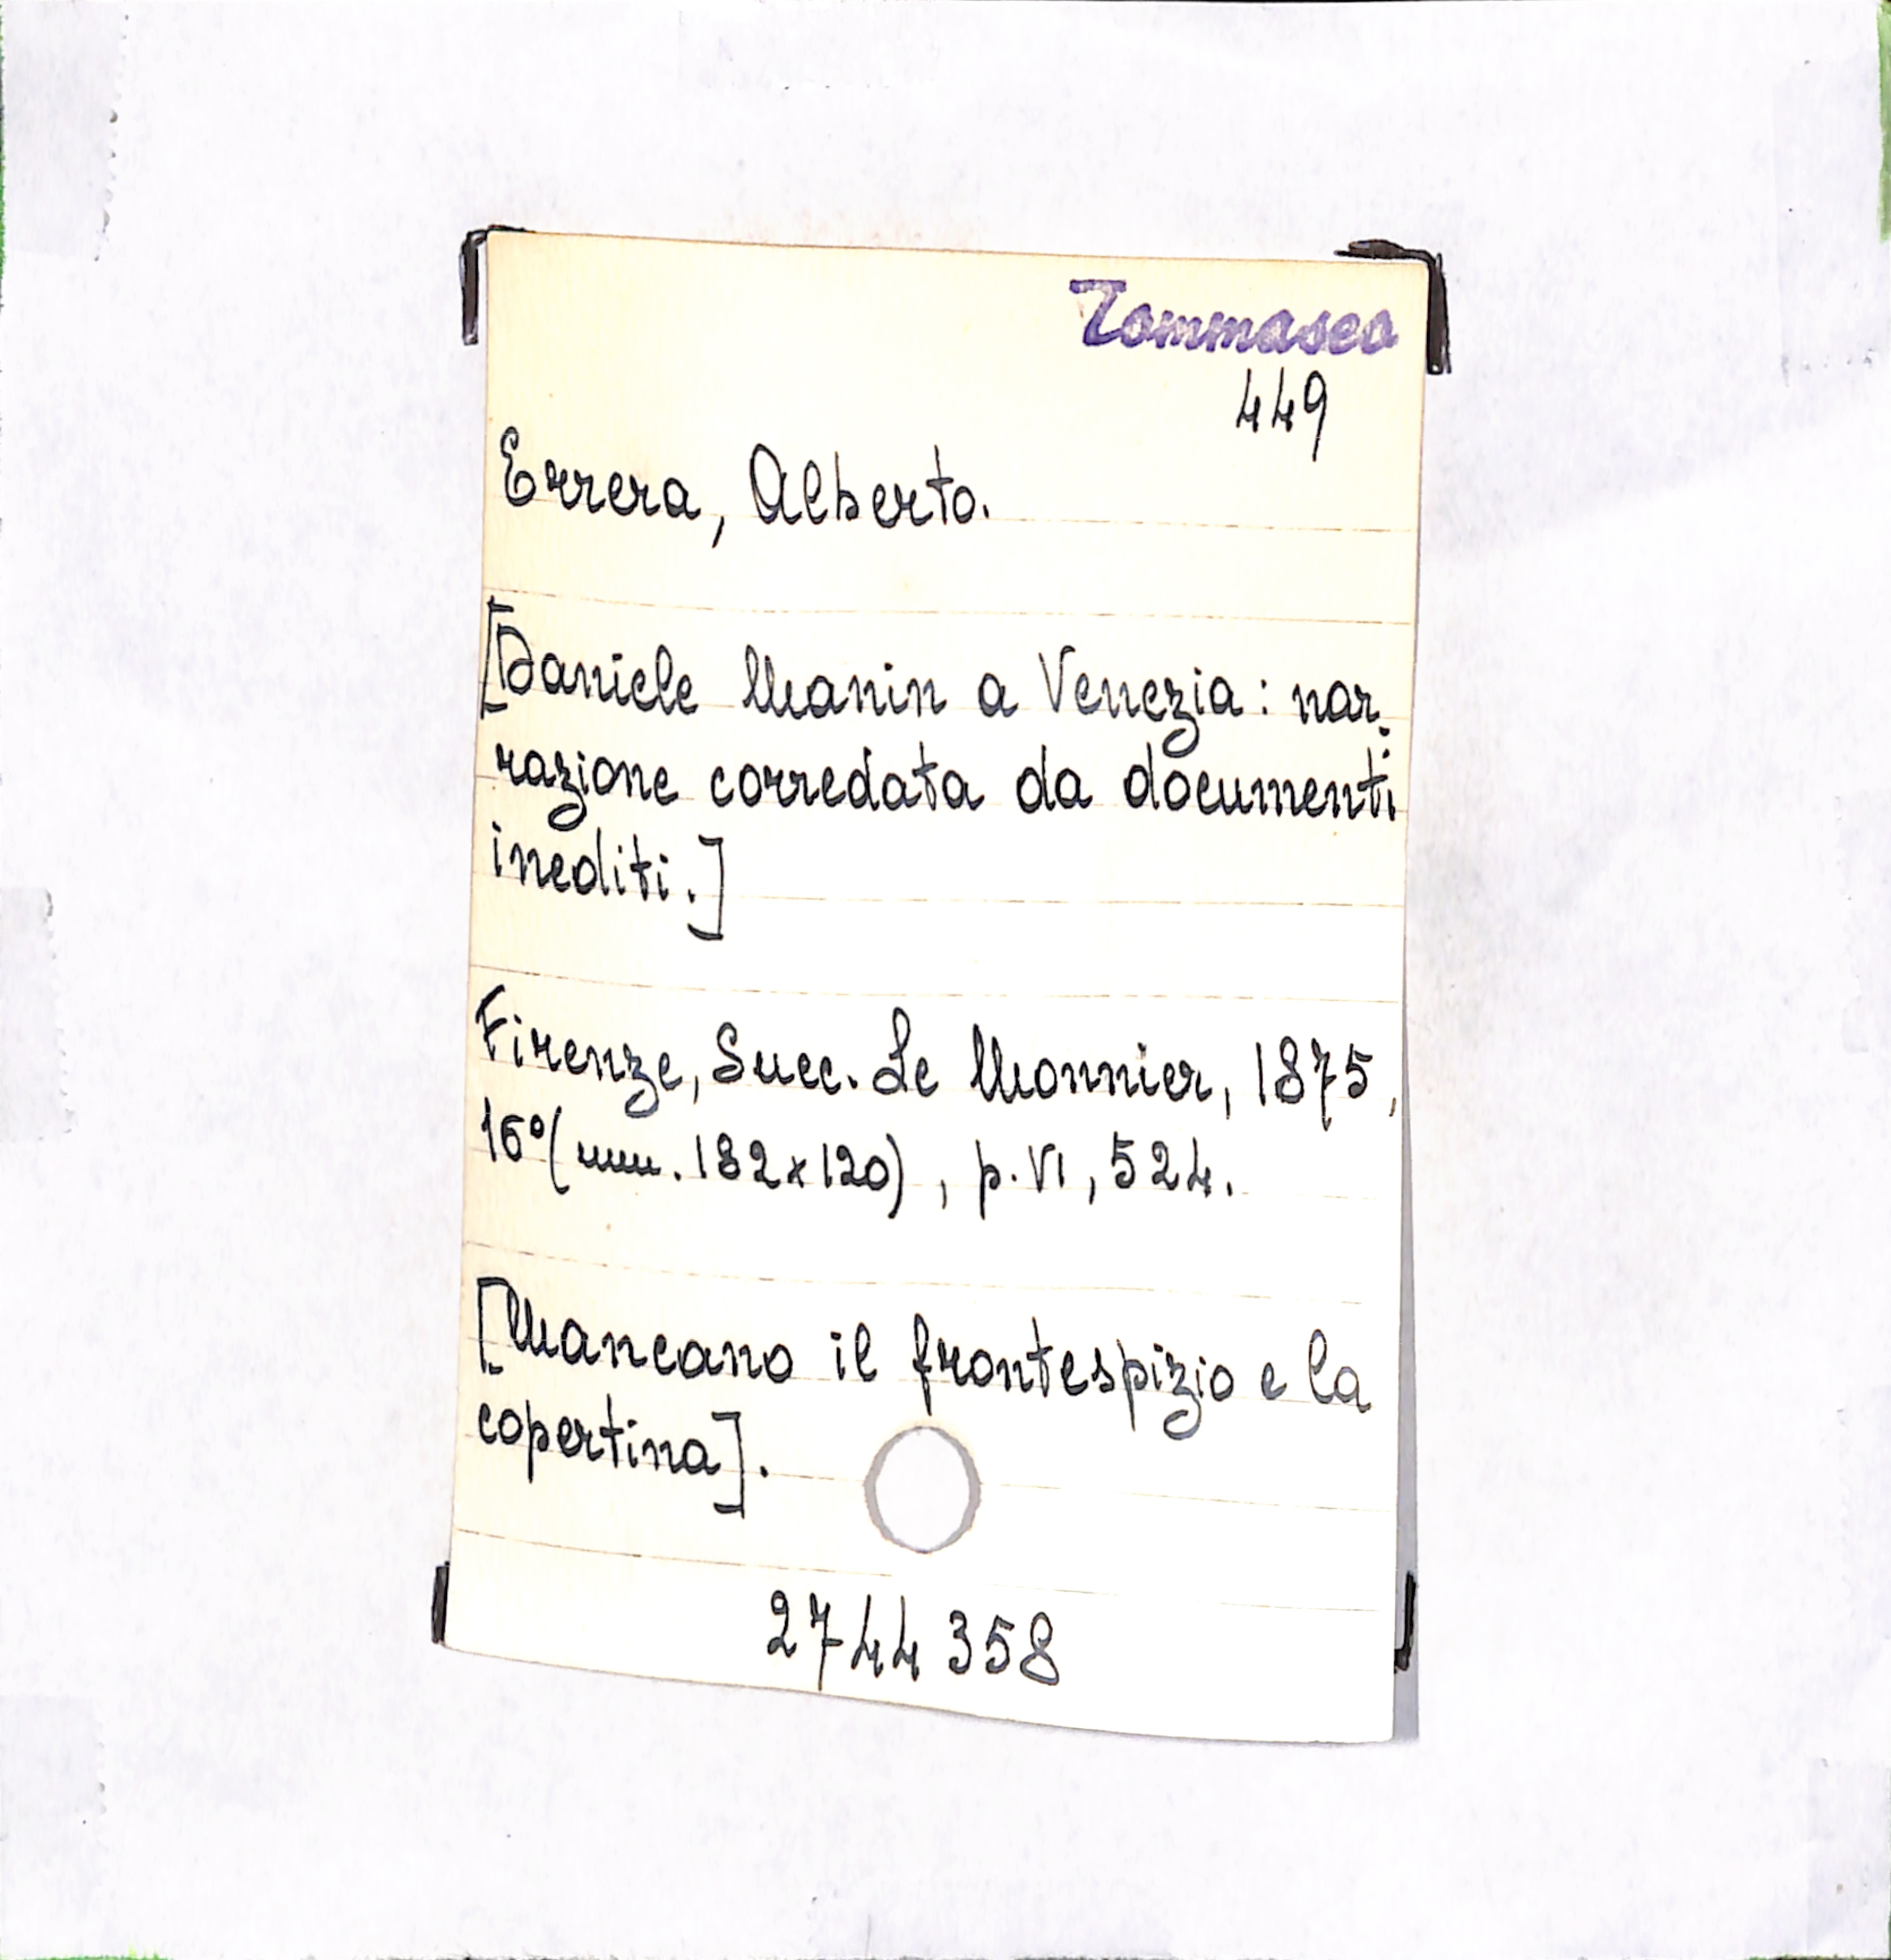 Tommaseo
449
Errera, Alberto.
[Daniele Manin a Venezia: nar-
razione corredata da documenti
inediti.]
Firenze, Succ. Le Monnier, 1875,
16°(mm. 182x120), p. VI, 524.
[Mancano il frontespizio e la
copertina].
2744358